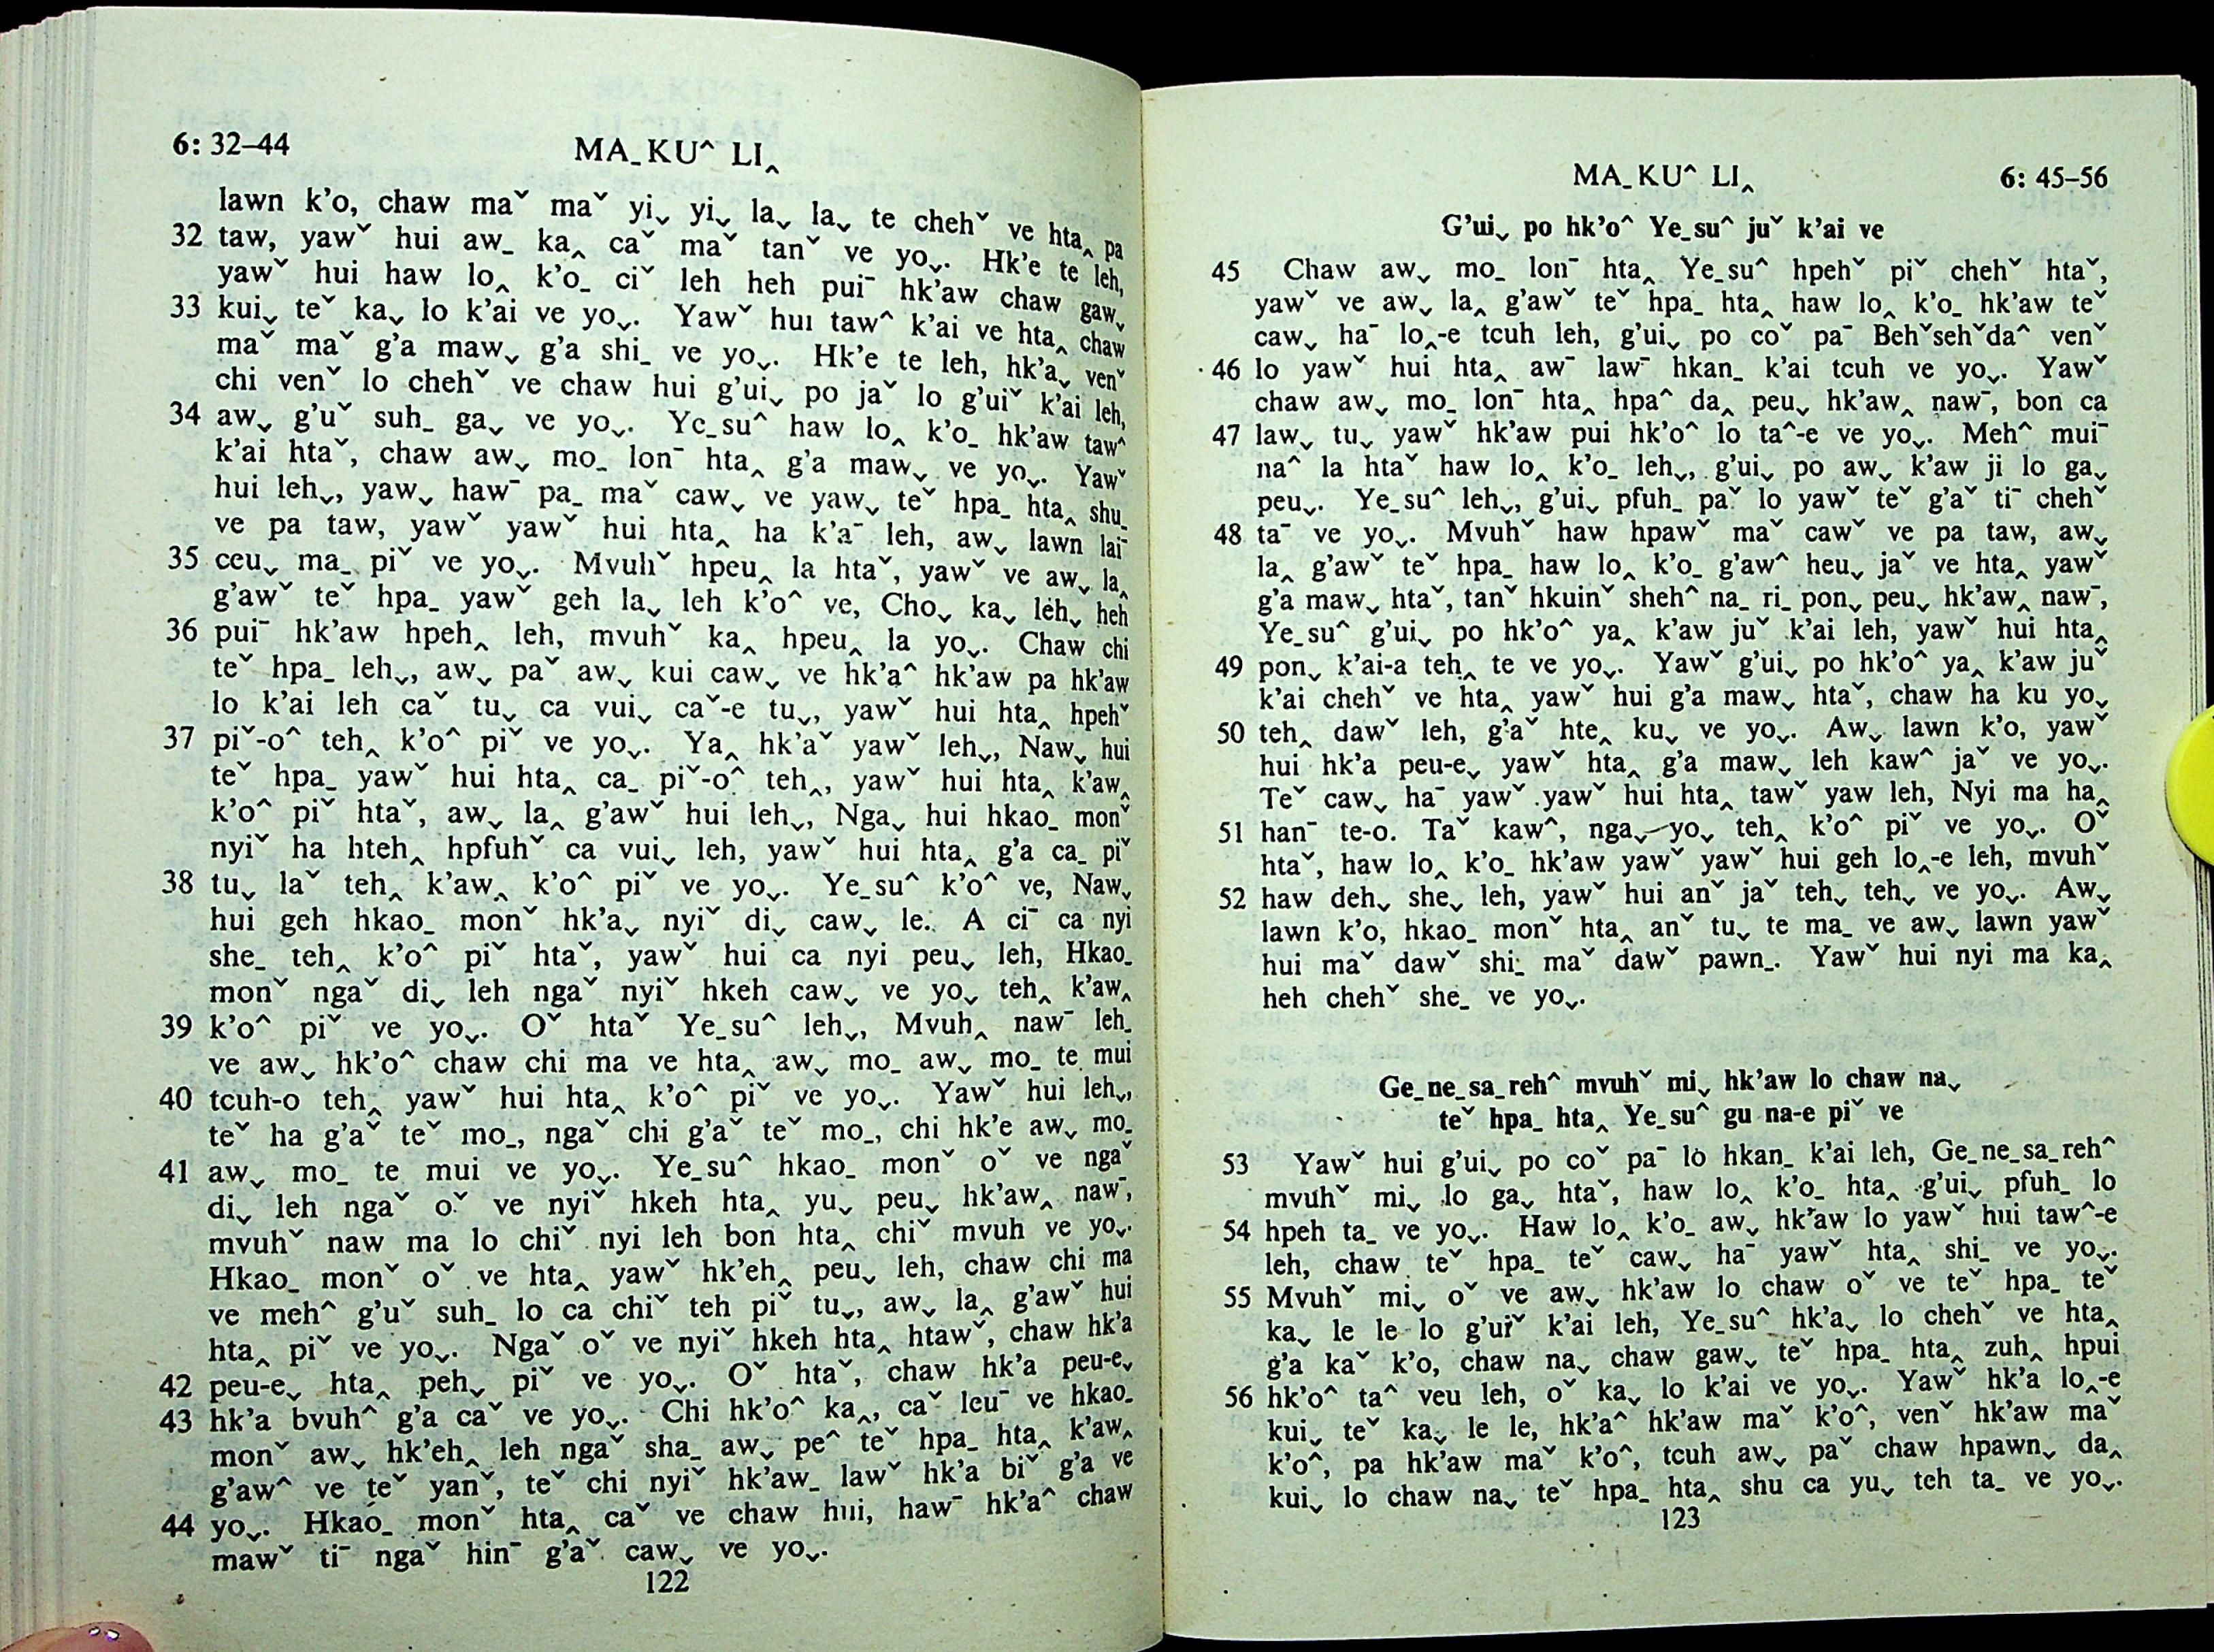 6: 32–44
MA_ KUˆ LI‸
lawn k’o, chaw maˇ maˇ yiˬ yiˬ laˬ laˬ te chehˇ ve hta‸ pa
32 taw, yawˇ hui aw_ ka‸ caˇ maˇ tanˇ ve yoˬ. Hk’e te leh,
yawˇ hui haw lo‸ k’o_ ciˇ leh heh puiˉ hk’aw chaw gawˬ
33 kuiˬ teˇ kaˬ lo k’ai ve yoˬ. Yawˇ hui tawˆ k’ai ve hta‸ chaw
maˇ maˇ g’a mawˬ g’a shi_ ve yoˬ. Hk’e te leh, hk’aˬ venˇ
chi venˇ lo chehˇ ve chaw hui g’uiˬ po jaˇ lo g’uiˇ k’ai leh,
34 awˬ g’uˇ suh_ gaˬ ve yoˬ. Ye_suˆ haw lo‸ k’o_ hk’aw tawˆ
k’ai htaˇ, chaw awˬ mo_ lonˉ hta‸ g’a mawˬ ve yoˬ. Yawˇ
hui lehˬ, yawˬ hawˉ pa_ maˇ cawˬ ve yawˬ teˇ hpa_ hta‸ shu_
ve pa taw, yawˇ yawˇ hui hta‸ ha k’aˉ leh, awˬ lawn laiˉ
35 ceuˬ ma_ piˇ ve yoˬ. Mvuhˇ hpeu‸ la htaˇ, yawˇ ve awˬ la‸
g’awˇ teˇ hpa_ yawˇ geh laˬ leh k’oˆ ve, Choˬ kaˬ lehˬ heh
36 puiˉ hk’aw hpeh‸ leh, mvuhˇ ka‸ hpeu‸ la yoˬ. Chaw chi
teˇ hpa_ lehˬ, awˬ paˇ awˬ kui cawˬ ve hk’aˆ hk’aw pa hk’aw
lo k’ai leh caˇ tuˬ ca vuiˬ caˇ-e tuˬ, yawˇ hui hta‸ hpehˇ
37 piˇ-oˆ teh‸ k’oˆ piˇ ve yoˬ. Ya‸ hk’aˇ yawˇ lehˬ, Nawˬ hui
teˇ hpa_ yawˇ hui hta‸ ca_ piˇ-oˆ teh‸, yawˇ hui hta‸ k’aw‸
k’oˆ piˇ htaˇ, awˬ la‸ g’awˇ hui lehˬ, Ngaˬ hui hkao_ monˇ
nyiˇ ha hteh‸ hpfuhˇ ca vuiˬ leh, yawˇ hui hta‸ g’a ca_ piˇ
38 tuˬ laˇ teh‸ k’aw‸ k’oˆ piˇ ve yoˬ. Ye_suˆ k’oˆ ve, Nawˬ
hui geh hkao_ monˇ hk’aˬ nyiˇ diˬ cawˬ le. A ciˉ ca nyi
she_ teh‸ k’oˆ piˇ htaˇ, yawˇ hui ca nyi peuˬ leh, Hkao_
monˇ ngaˇ diˬ leh ngaˇ nyiˇ hkeh cawˬ ve yoˬ teh‸ k’aw‸
39 k’oˆ piˇ ve yoˬ. Oˇ htaˇ Ye_suˆ lehˬ, Mvuh‸ nawˉ leh_
ve awˬ hk’oˆ chaw chi ma ve hta‸ awˬ mo_ awˬ mo_ te mui
40 tcuh-o teh‸ yawˇ hui hta‸ k’oˆ piˇ ve yoˬ. Yawˇ hui lehˬ,
teˇ ha g’aˇ teˇ mo_, ngaˇ chi g’aˇ teˇ mo_, chi hk’e awˬ mo_
41 awˬ mo_ te mui ve yoˬ. Ye_suˆ hkao_ monˇ oˇ ve ngaˇ
diˬ leh ngaˇ oˇ ve nyiˇ hkeh hta‸ yuˬ peuˬ hk’aw‸ nawˉ,
mvuhˇ naw ma lo chiˇ nyi leh bon hta‸ chiˇ mvuh ve yoˬ.
Hkao_ monˇ oˇ ve hta‸ yawˇ hk’eh‸ peuˬ leh, chaw chi ma
ve mehˆ g’uˇ suh_ lo ca chiˇ teh piˇ tuˬ, awˬ la‸ g’awˇ hui
hta‸ piˇ ve yoˬ. Ngaˇ oˇ ve nyiˇ hkeh hta‸ htawˇ, chaw hk’a
42 peu-eˬ hta‸ pehˬ piˇ ve yoˬ. Oˇ htaˇ, chaw hk’a peu-eˬ
43 hk’a bvuhˆ g’a caˇ ve yoˬ. Chi hk’oˆ ka‸, caˇ leuˉ ve hkao_
monˇ awˬ hk’eh‸ leh ngaˇ sha_ awˬ peˆ teˇ hpa_ hta‸ k’aw‸
g’awˆ ve teˇ yanˇ, teˇ chi nyiˇ hk’aw_ lawˇ hk’a biˇ g’a ve
44 yoˬ. Hkao_ monˇ hta‸ caˇ ve chaw hui, hawˉ hk’aˆ chaw
mawˇ tiˉ ngaˇ hinˉ g’aˇ cawˬ ve yoˬ.
122
MA_ KUˆ LI‸
6: 45–56
G’uiˬ po hk’oˆ Ye_suˆ juˇ k’ai ve
45 Chaw awˬ mo_ lonˉ hta‸ Ye_suˆ hpehˇ piˇ chehˇ htaˇ,
yawˇ ve awˬ la‸ g’awˇ teˇ hpa_ hta‸ haw lo‸ k’o_ hk’aw teˇ
cawˬ haˉ lo‸-e tcuh leh, g’uiˬ po coˇ paˉ Behˇsehˇdaˆ venˇ
46 lo yawˇ hui hta‸ awˉ lawˉ hkan_ k’ai tcuh ve yoˬ. Yawˇ
chaw awˬ mo_ lonˉ hta‸ hpaˆ da‸ peuˬ hk’aw‸ nawˉ, bon ca
47 lawˬ tuˬ yawˇ hk’aw pui hk’oˆ lo taˆ-e ve yoˬ. Mehˆ muiˉ
naˆ la htaˇ haw lo‸ k’o_ lehˬ, g’uiˬ po awˬ k’aw ji lo gaˬ
peuˬ. Ye_suˆ lehˬ, g’uiˬ pfuh_ paˇ lo yawˇ teˇ g’aˇ tiˉ chehˇ
48 taˉ ve yoˬ. Mvuhˇ haw hpawˇ maˇ cawˇ ve pa taw, awˬ
la‸ g’awˇ teˇ hpa_ haw lo‸ k’o_ g’awˆ heuˬ jaˇ ve hta‸ yawˇ
g’a mawˬ htaˇ, tanˇ hkuinˇ shehˆ na_ ri_ ponˬ peuˬ hk’aw‸ nawˉ,
Ye_suˆ g’uiˬ po hk’oˆ ya‸ k’aw juˇ k’ai leh, yawˇ hui hta‸
49 ponˬ k’ai-a teh‸ te ve yoˬ. Yawˇ g’uiˬ po hk’oˆ ya‸ k’aw juˇ
k’ai chehˇ ve hta‸ yawˇ hui g’a mawˬ htaˇ, chaw ha ku yoˬ
50 teh‸ dawˇ leh, g’aˇ hte‸ kuˬ ve yoˬ. Awˬ lawn k’o, yawˇ
hui hk’a peu-eˬ yawˇ hta‸ g’a mawˬ leh kawˆ jaˇ ve yoˬ.
Teˇ cawˬ haˉ yawˇ yawˇ hui hta‸ tawˇ yaw leh, Nyi ma ha‸
51 hanˉ te-o. Taˇ kawˆ, ngaˬ yoˬ teh‸ k’oˆ piˇ ve yoˬ. Oˇ
htaˇ, haw lo‸ k’o_ hk’aw yawˇ yawˇ hui geh lo‸-e leh, mvuhˇ
52 haw dehˬ sheˬ leh, yawˇ hui anˇ jaˇ tehˬ tehˬ ve yoˬ. Awˬ
lawn k’o, hkao_ monˇ hta‸ anˇ tuˬ te ma_ ve awˬ lawn yawˇ
hui maˇ dawˇ shi_ maˇ dawˇ pawn_. Yawˇ hui nyi ma ka‸
heh chehˇ she_ ve yoˬ.
Ge_ne_sa_rehˆ mvuhˇ miˬ hk’aw lo chaw naˬ
teˇ hpa_ hta‸ Ye_suˆ gu na-e piˇ ve
53 Yawˇ hui g’uiˬ po coˇ paˉ lo hkan_ k’ai leh, Ge_ne_sa_rehˆ
mvuhˇ miˬ lo gaˬ htaˇ, haw lo‸ k’o_ hta‸ g’uiˬ pfuh_ lo
54 hpeh ta_ ve yoˬ. Haw lo‸ k’o_ awˬ hk’aw lo yawˇ hui tawˆ-e
leh, chaw teˇ hpa_ teˇ cawˬ haˉ yawˇ hta‸ shi_ ve yoˬ.
55 Mvuhˇ miˬ oˇ ve awˬ hk’aw lo chaw oˇ ve teˇ hpa_ teˇ
kaˬ le le lo g’uiˇ k’ai leh, Ye_suˆ hk’aˬ lo chehˇ ve hta‸
g’a kaˇ k’o, chaw naˬ chaw gawˬ teˇ hpa_ hta‸ zuh‸ hpui
56 hk’oˆ taˆ veu leh, oˇ kaˬ lo k’ai ve yoˬ. Yawˇ hk’a lo‸-e
kuiˬ teˇ kaˬ le le, hk’aˆ hk’aw maˇ k’oˆ, venˇ hk’aw maˇ
k’oˆ, pa hk’aw maˇ k’oˆ, tcuh awˬ paˇ chaw hpawnˬ da‸
kuiˬ lo chaw naˬ teˇ hpa_ hta‸ shu ca yuˬ teh ta_ ve yoˬ.
123